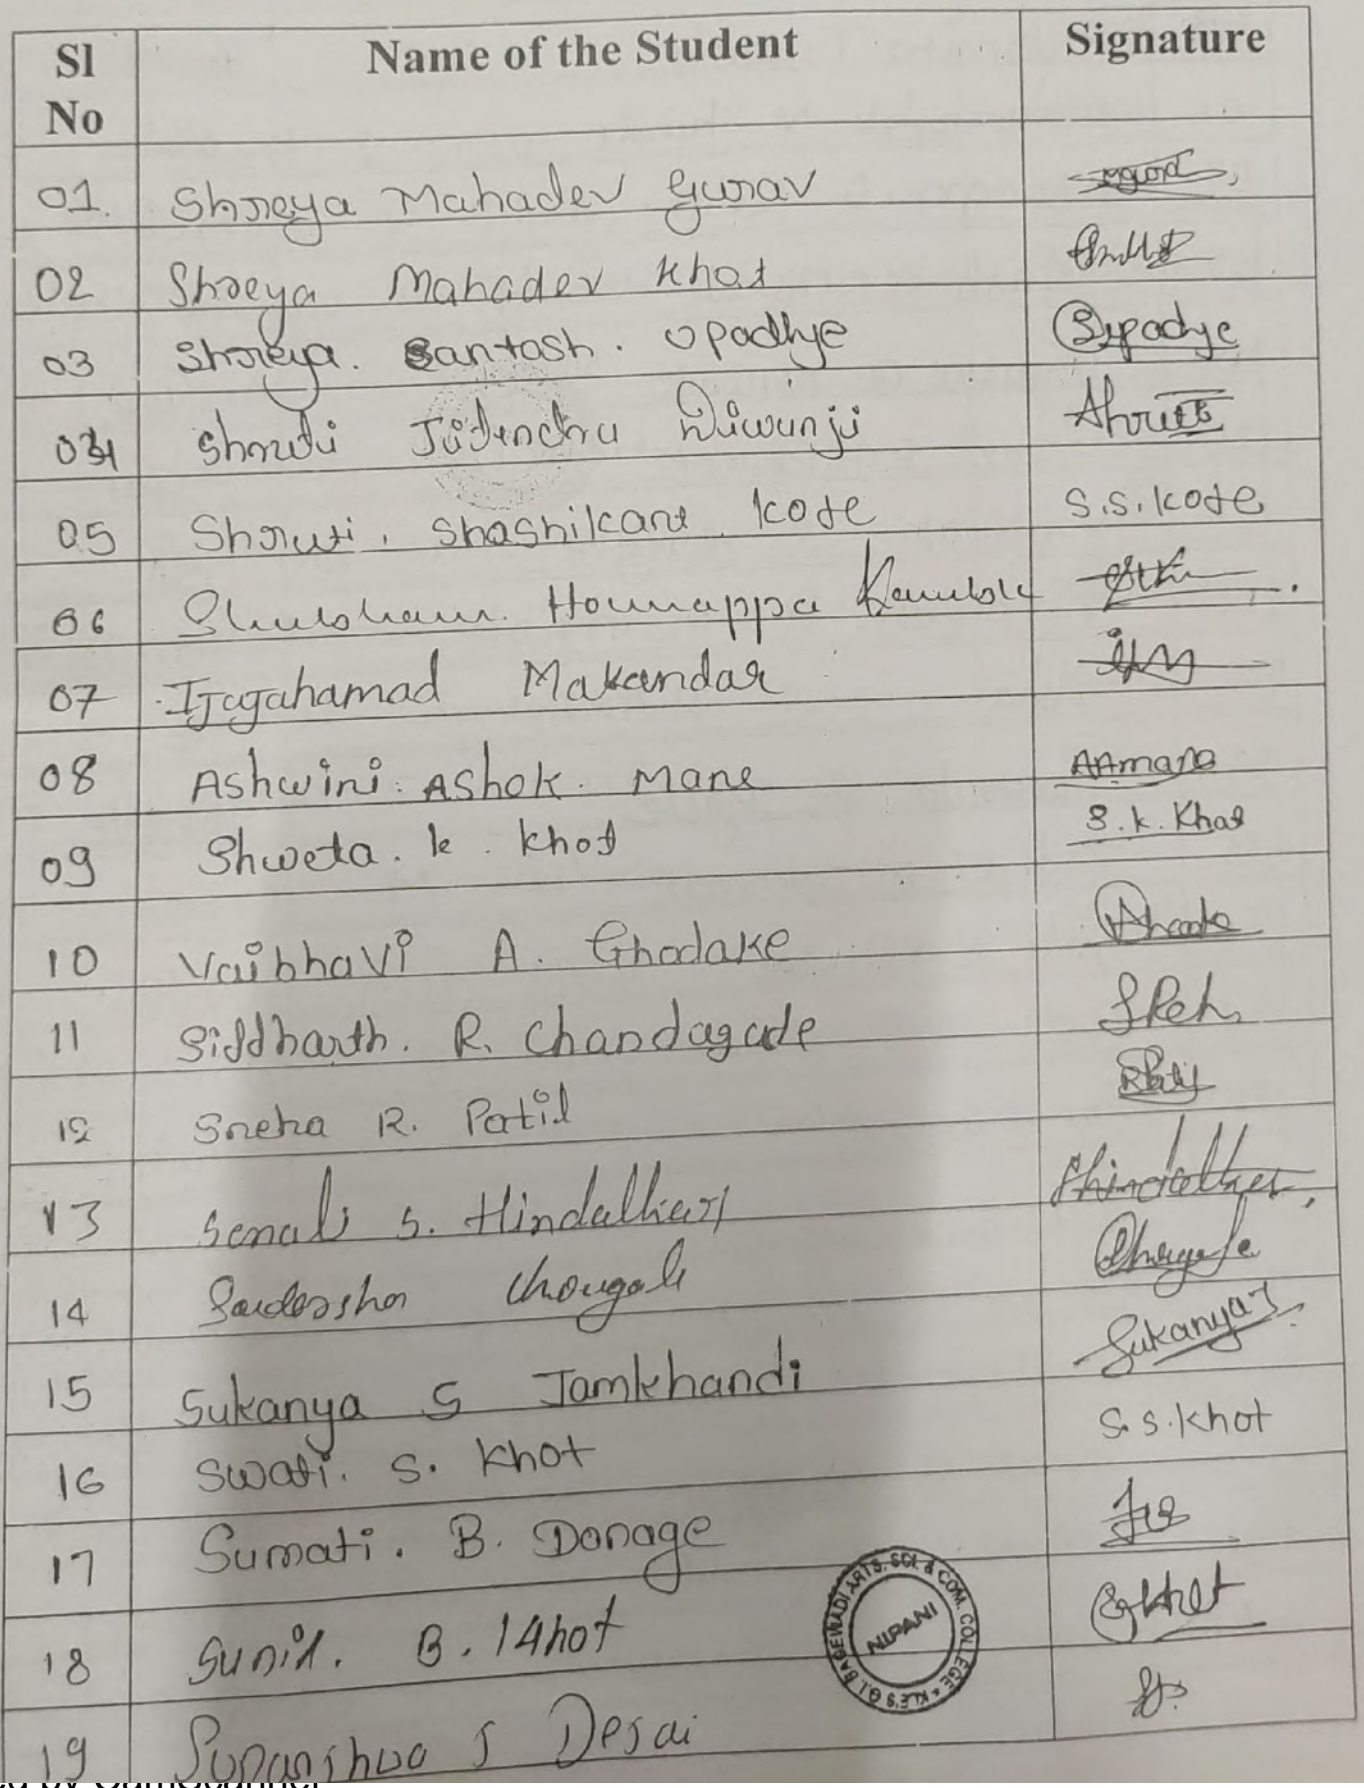 Sl No Name of the Student Signature
01. Shreya Mahadev Gurav
02 Shreya Mahadev Khot
03 Shreya. Santosh. Upadhye Supadye
04 Shruti Jitendra Diwanji Shruti
05 Shruti. Shashikant. Kote S.S. Kote
06 Shubham. Honnappa Kamble
07 Ijajahamad Makandar
08 Ashwini. Ashok. Mane AAmane
09 Shweta. k. Khot S.K. Khot
10 Vaibhavi A. Ghodake
11 Siddharth. R. Chandagade
12 Sneha R. Patil
13 Sonali S. Hindalkar Shindalkar
14 Chougale
15 Sukanya S Jamkhandi Sukanya J
16 Swati. S. Khot S. S. Khot
17 Sumati. B. Donage
18 Sunil. B. Khot
19 S Desai
G.I. BAGEWADI ARTS, SCI. & COM. COLLEGE KLE'S
NIPANI